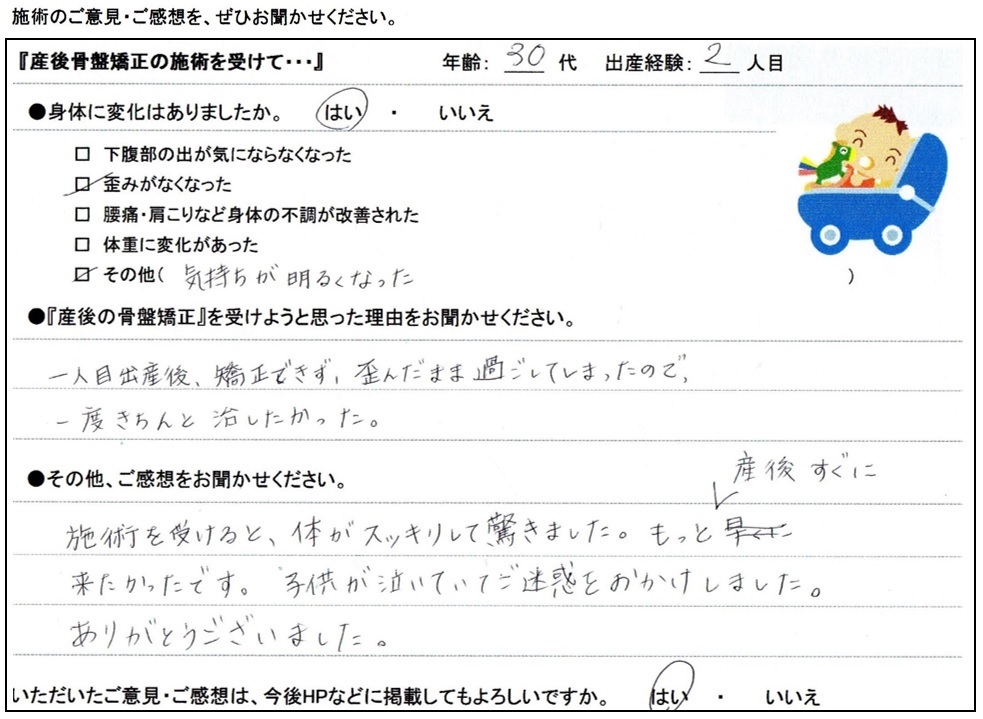 施術のご意見・ご感想を、ぜひお聞かせください。
『産後骨盤矯正の施術を受けて・・・』 年齢： 30 代 出産経験： 2 人目
●身体に変化はありましたか。 はい ・ いいえ
□ 下腹部の出が気にならなくなった
☑ 歪みがなくなった
□ 腰痛・肩こりなど身体の不調が改善された
□ 体重に変化があった
☑ その他（ 気持ちが明るくなった ）
●『産後の骨盤矯正』を受けようと思った理由をお聞かせください。
一人目出産後、矯正できず、歪んだまま過ごしてしまったので、
一度きちんと治したかった。
●その他、ご感想をお聞かせください。
産後すぐに
施術を受けると、体がスッキリして驚きました。もっと早くに
来たかったです。子供が泣いていてご迷惑をおかけしました。
ありがとうございました。
いただいたご意見・ご感想は、今後HPなどに掲載してもよろしいですか。 はい ・ いいえ